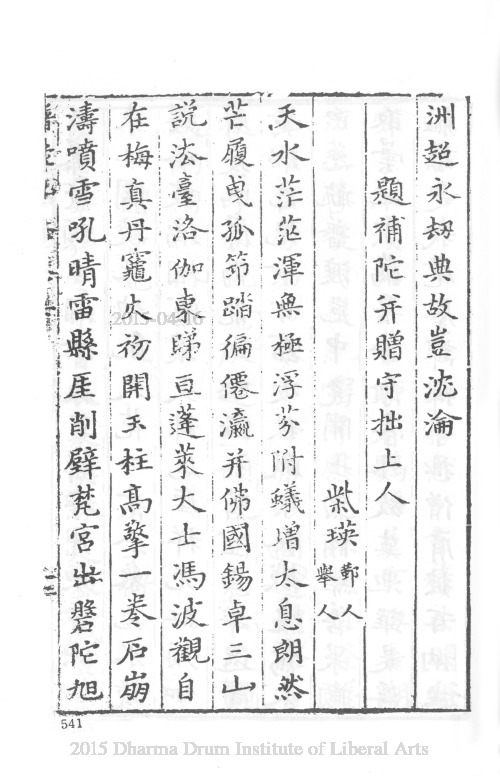 洲超永刼典故豈沈淪
題補陀并贈守拙上人
柴瑛鄞人舉人
天水茫茫渾無極浮芥附蟻增太息朗然
芒履曳孤笻踏徧僊瀛并佛國錫卓三山
說法臺洛伽東睇亘蓬萊大士馮波觀自
在梅真丹竈火初開玉柱高擎一卷石崩
濤噴雪吼晴雷縣厓削壁梵宮出磐陀旭
541
2015-04-16
2015 Dharma Drum Institute of Liberal Arts